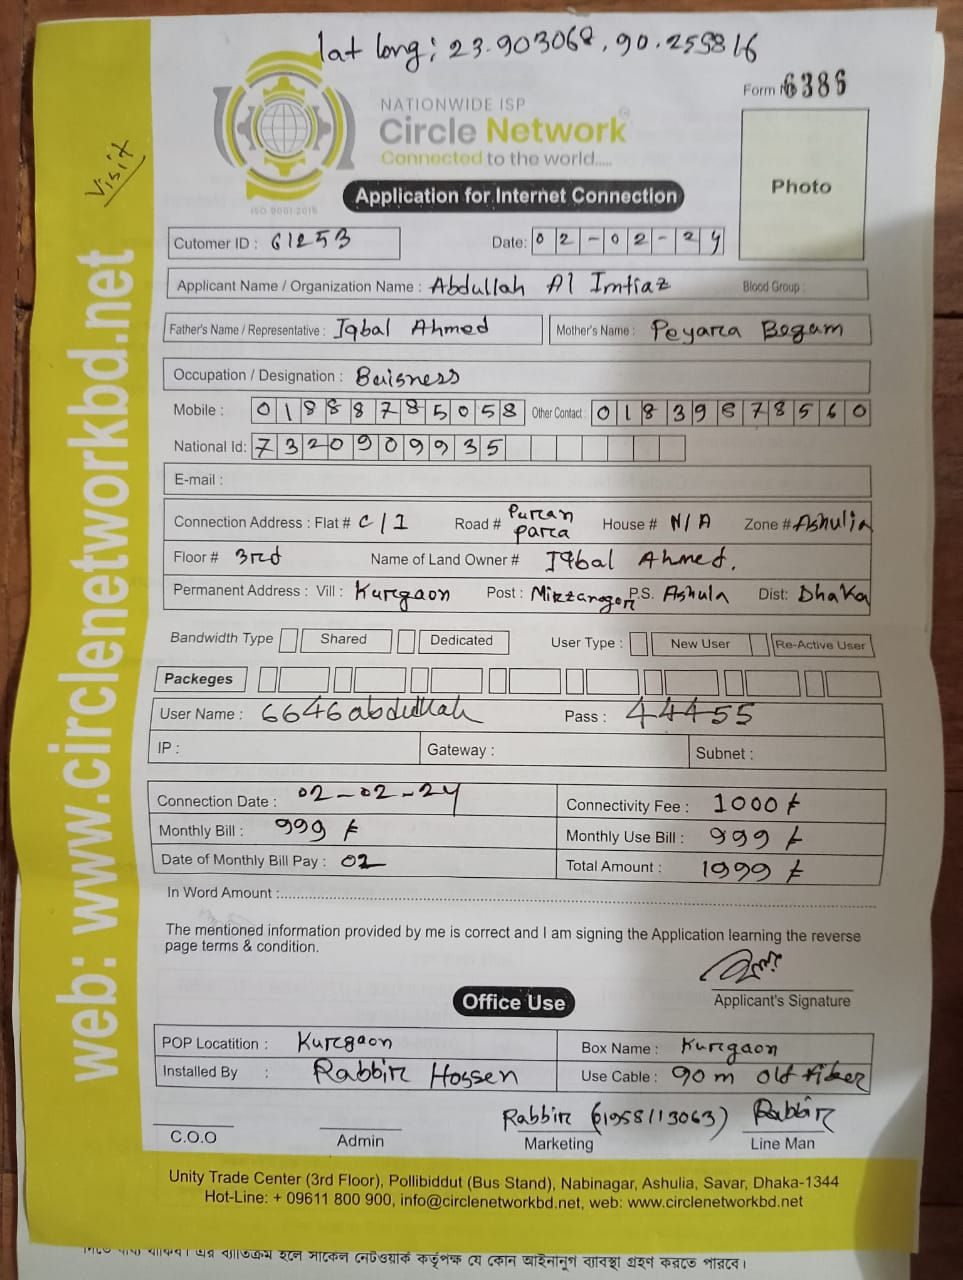 lat long: 23.903068, 90.255816
Form 6386
NATIONWIDE ISP
Circle Network
Connected to the world.....
ISO 9001:2015
Visit
Photo
Application for Internet Connection
Cutomer ID : 61253
Date: 02-02-24
Applicant Name / Organization Name : Abdullah Al Imtiaz Blood Group :
Father's Name / Representative : Iqbal Ahmed Mother's Name : Peyara Begam
Occupation / Designation : Buisness
Mobile : 01888785058 Other Contact : 01839678560
National Id: 7320909935
E-mail :
Connection Address : Flat # C/1 Road # Puran para House # N/A Zone # Ashulia
Floor # 3rd Name of Land Owner # Iqbal Ahmed.
Permanent Address : Vill : Kurgaon Post : Mirzanagor P.S. Ashula Dist: Dhaka
Bandwidth Type Shared Dedicated User Type : New User Re-Active User
Packeges
User Name : 6646abdullah Pass : 44455
IP : Gateway : Subnet :
Connection Date : 02-02-24 Connectivity Fee : 1000 ৳
Monthly Bill : 999 ৳ Monthly Use Bill : 999 ৳
Date of Monthly Bill Pay : 02 Total Amount : 1999 ৳
In Word Amount :
The mentioned information provided by me is correct and I am signing the Application learning the reverse
page terms & condition.
Applicant's Signature
Office Use
POP Locatition : Kurgaon Box Name : Kurgaon
Installed By : Rabbir Hossen Use Cable : 90m old fiber
Rabbir (01958113063) Rabbir
C.O.O Admin Marketing Line Man
Unity Trade Center (3rd Floor), Pollibiddut (Bus Stand), Nabinagar, Ashulia, Savar, Dhaka-1344
Hot-Line: + 09611 800 900, info@circlenetworkbd.net, web: www.circlenetworkbd.net
web: www.circlenetworkbd.net
এর ব্যতিক্রম হলে সার্কেল নেটওয়ার্ক কর্তৃপক্ষ যে কোন আইনানুগ ব্যবস্থা গ্রহণ করতে পারবে।